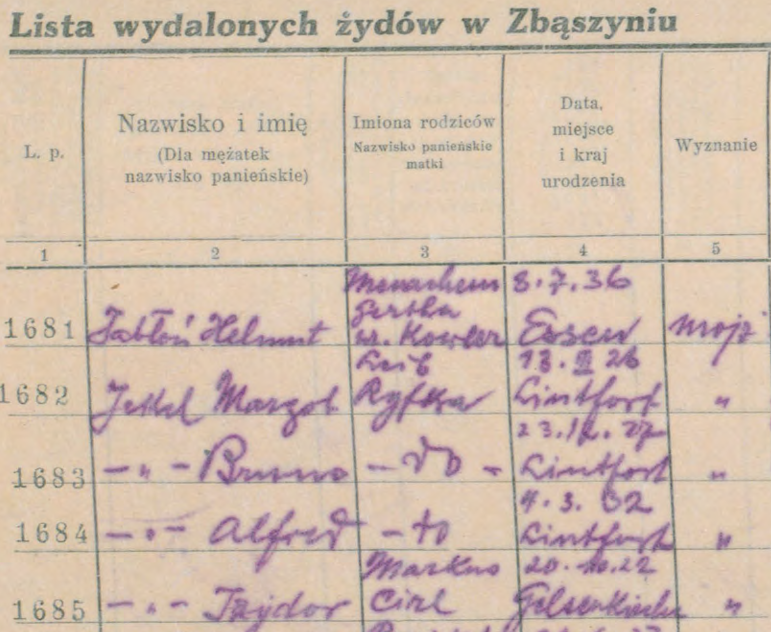 Lista wydalonych żydów w Zbąszyniu
L. p.
Nazwisko i imię
(Dla mężatek
nazwisko panieńskie)
Imiona rodziców
Nazwisko panieńskie
matki
Data,
miejsce
i kraj
urodzenia
Wyznanie
1 2 3 4 5
Menachem 8.7.36
Gertha
1681 Jabłoń Helmut ur. Kowler Essen mojż
Leib 13.III 26
1682 Jekel Margot Ryfka Lintfort "
23.12.27
1683 — " — Bruno — do — Lintfort "
4.3.32
1684 — " — Alfred — do Lintfort "
Markus 20.10.22
1685 — " — Izydor Cirl Gelsenkirchen "